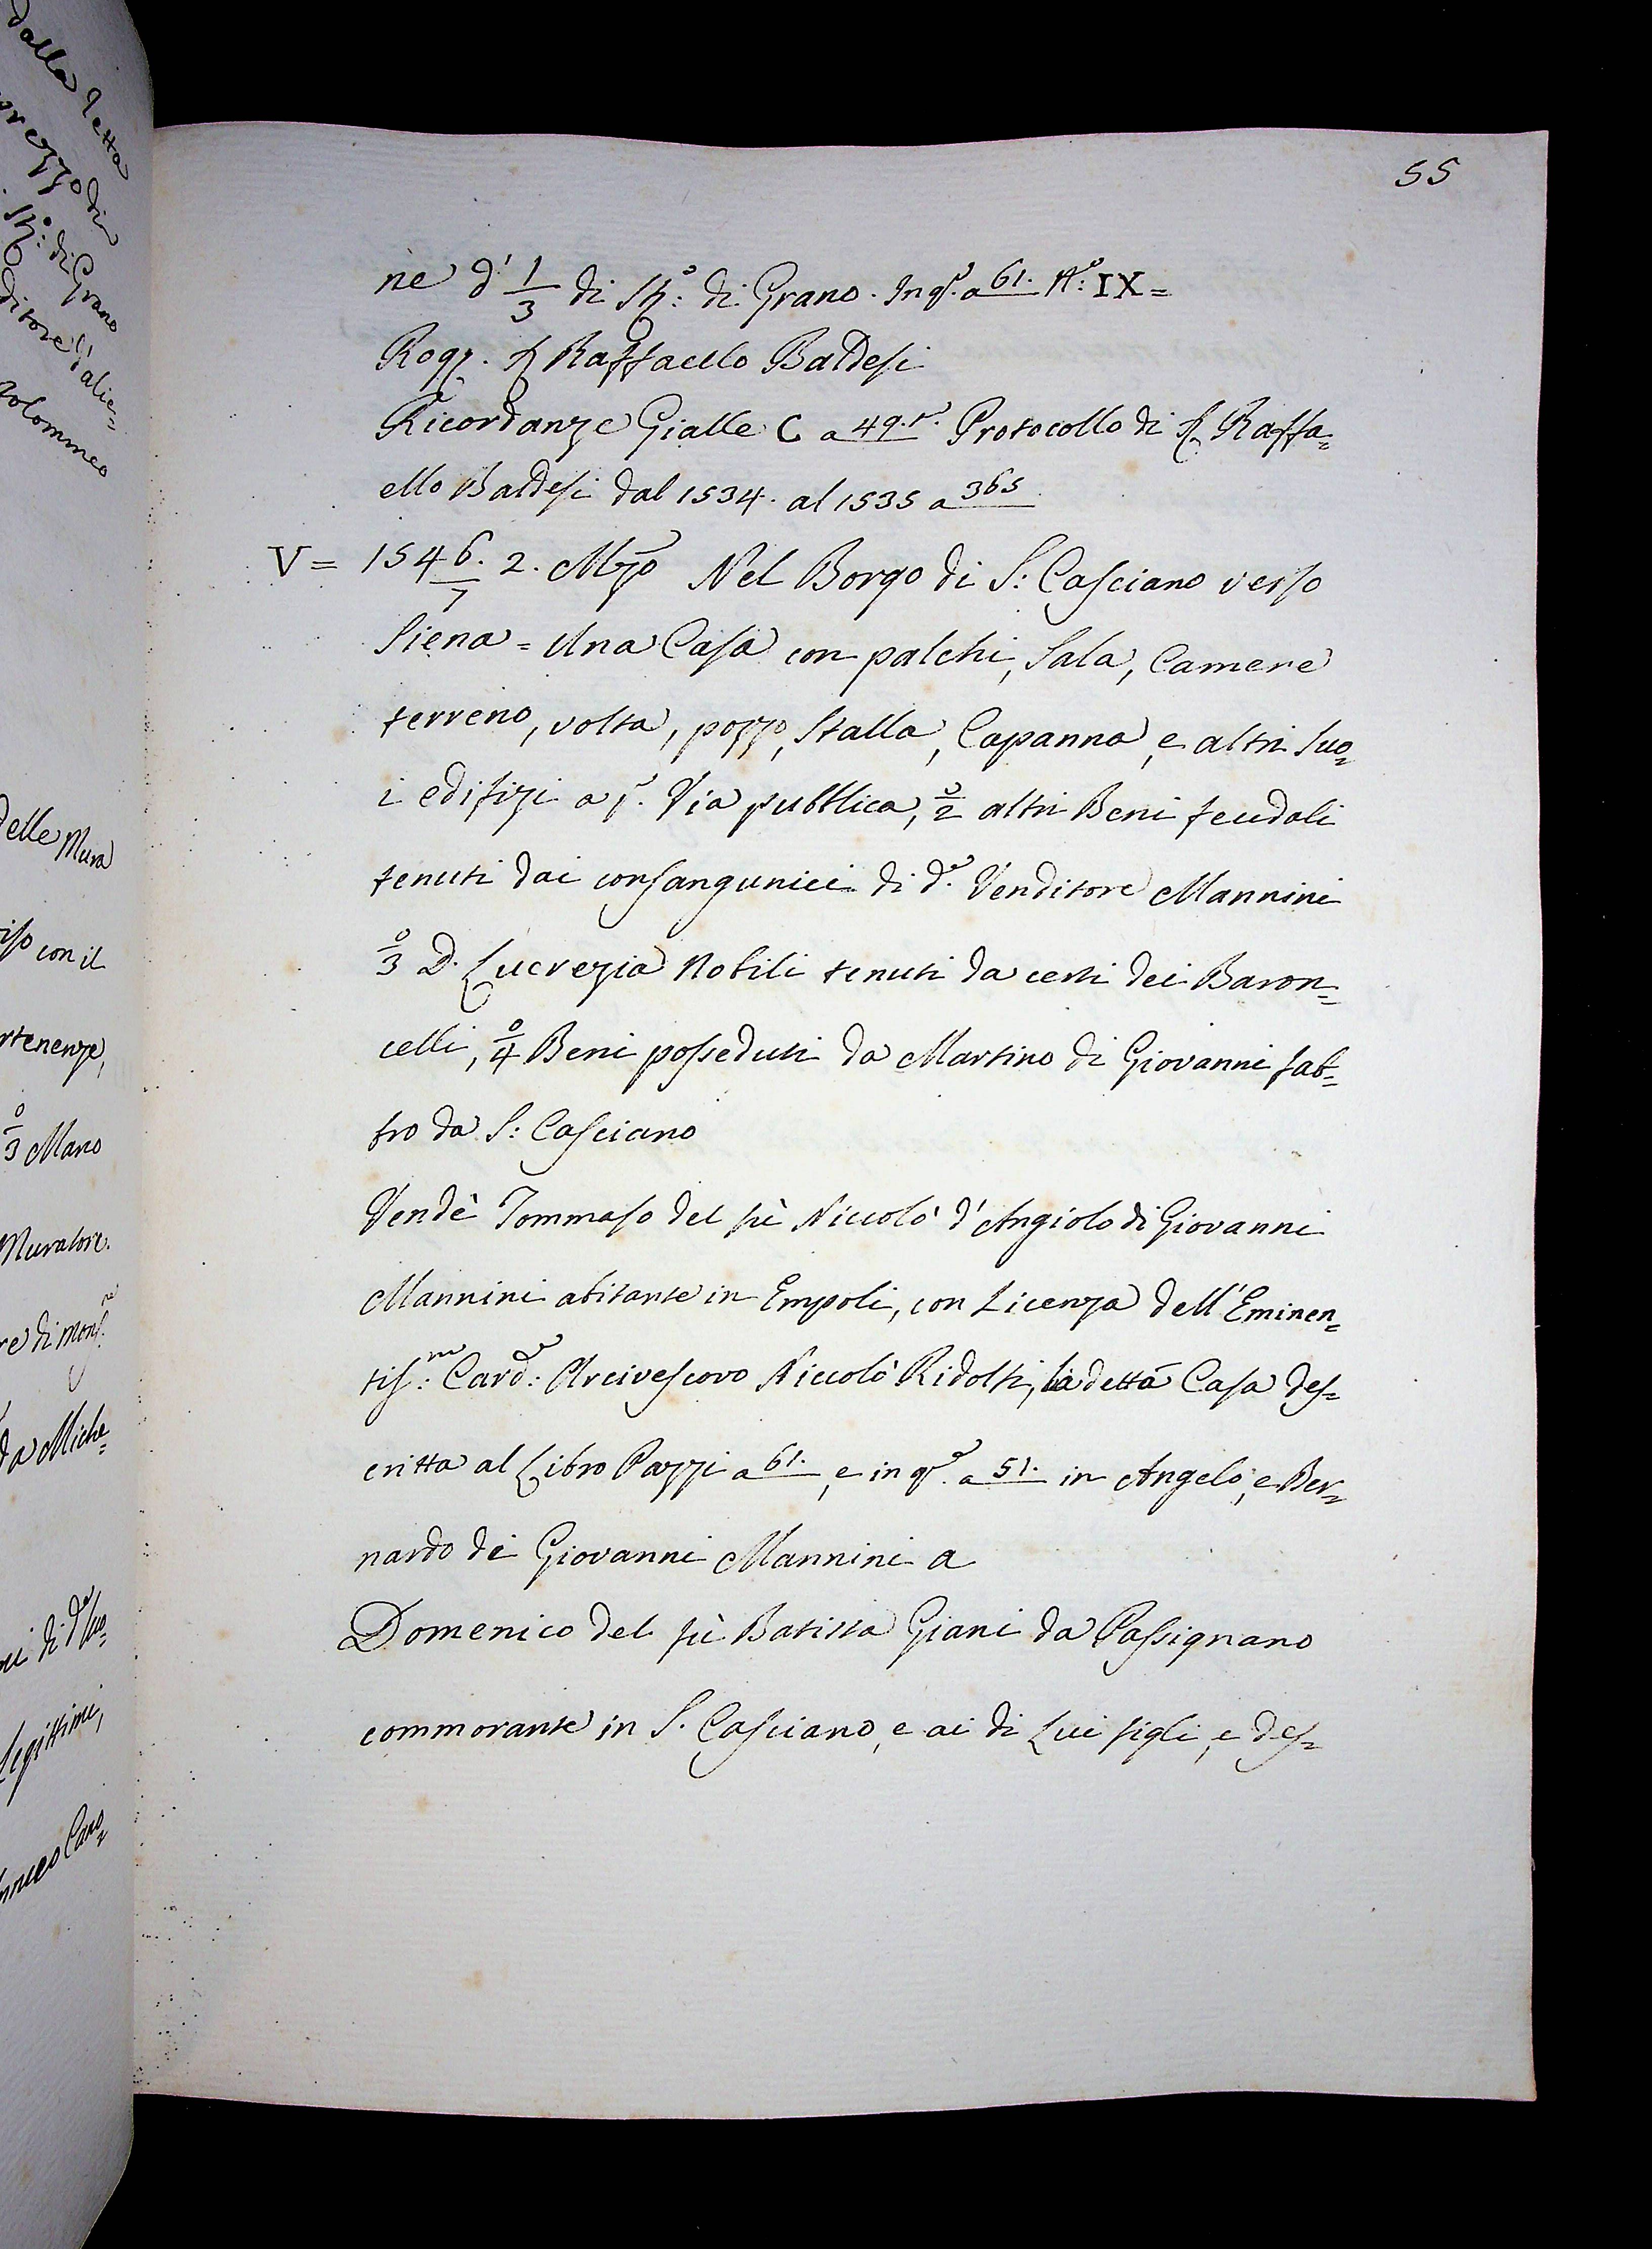 55
ne d' 1/3 di St:° di Grano. In q.° a 61. N:° IX =
Rog. S. Raffaello Baldesi
Ricordanze Gialle C a 49.t. Protocollo di S. Raffa=
ello Baldesi dal 1534. al 1535 a 365
V = 1546/7. 2. Mzo Nel Borgo di S: Casciano verso
Siena = Una Casa con palchi, Sala, Camere
terreno, volta, pozzo, Stalla, Capanna, e altri suo=
i edifizi a p.° Via pubblica, 2° altri Beni feudali
tenuti dai consangunici di d.° Venditore Mannini
3° D. Lucrezia Nobili tenuti da certi dei Baron=
celli, 4° Beni posseduti da Martino di Giovanni fab=
bro da S: Casciano
Vendè Tommaso del fù Niccolò d'Angiolo di Giovanni
Mannini abitante in Empoli, con Licenza dell'Eminen=
tis:mo Card:e Arcivescovo Niccolò Ridolfi, la detta Casa des=
critta al Libro Pazzi a 61. e in q.° a 51. in Angelo, e Ber=
nardo di Giovanni Mannini a
Domenico del fù Batista Giani da Passignano
commorante in S. Casciano, e ai di Lui figli, e des=
dalla detta
prezzo di
St:° di Grano
ditore d'alie=
tolommeo
delle Mura
con il
rtenenze,
3° Mano
Muratore.
re di Mons.re
da Miche=
Legittimi,